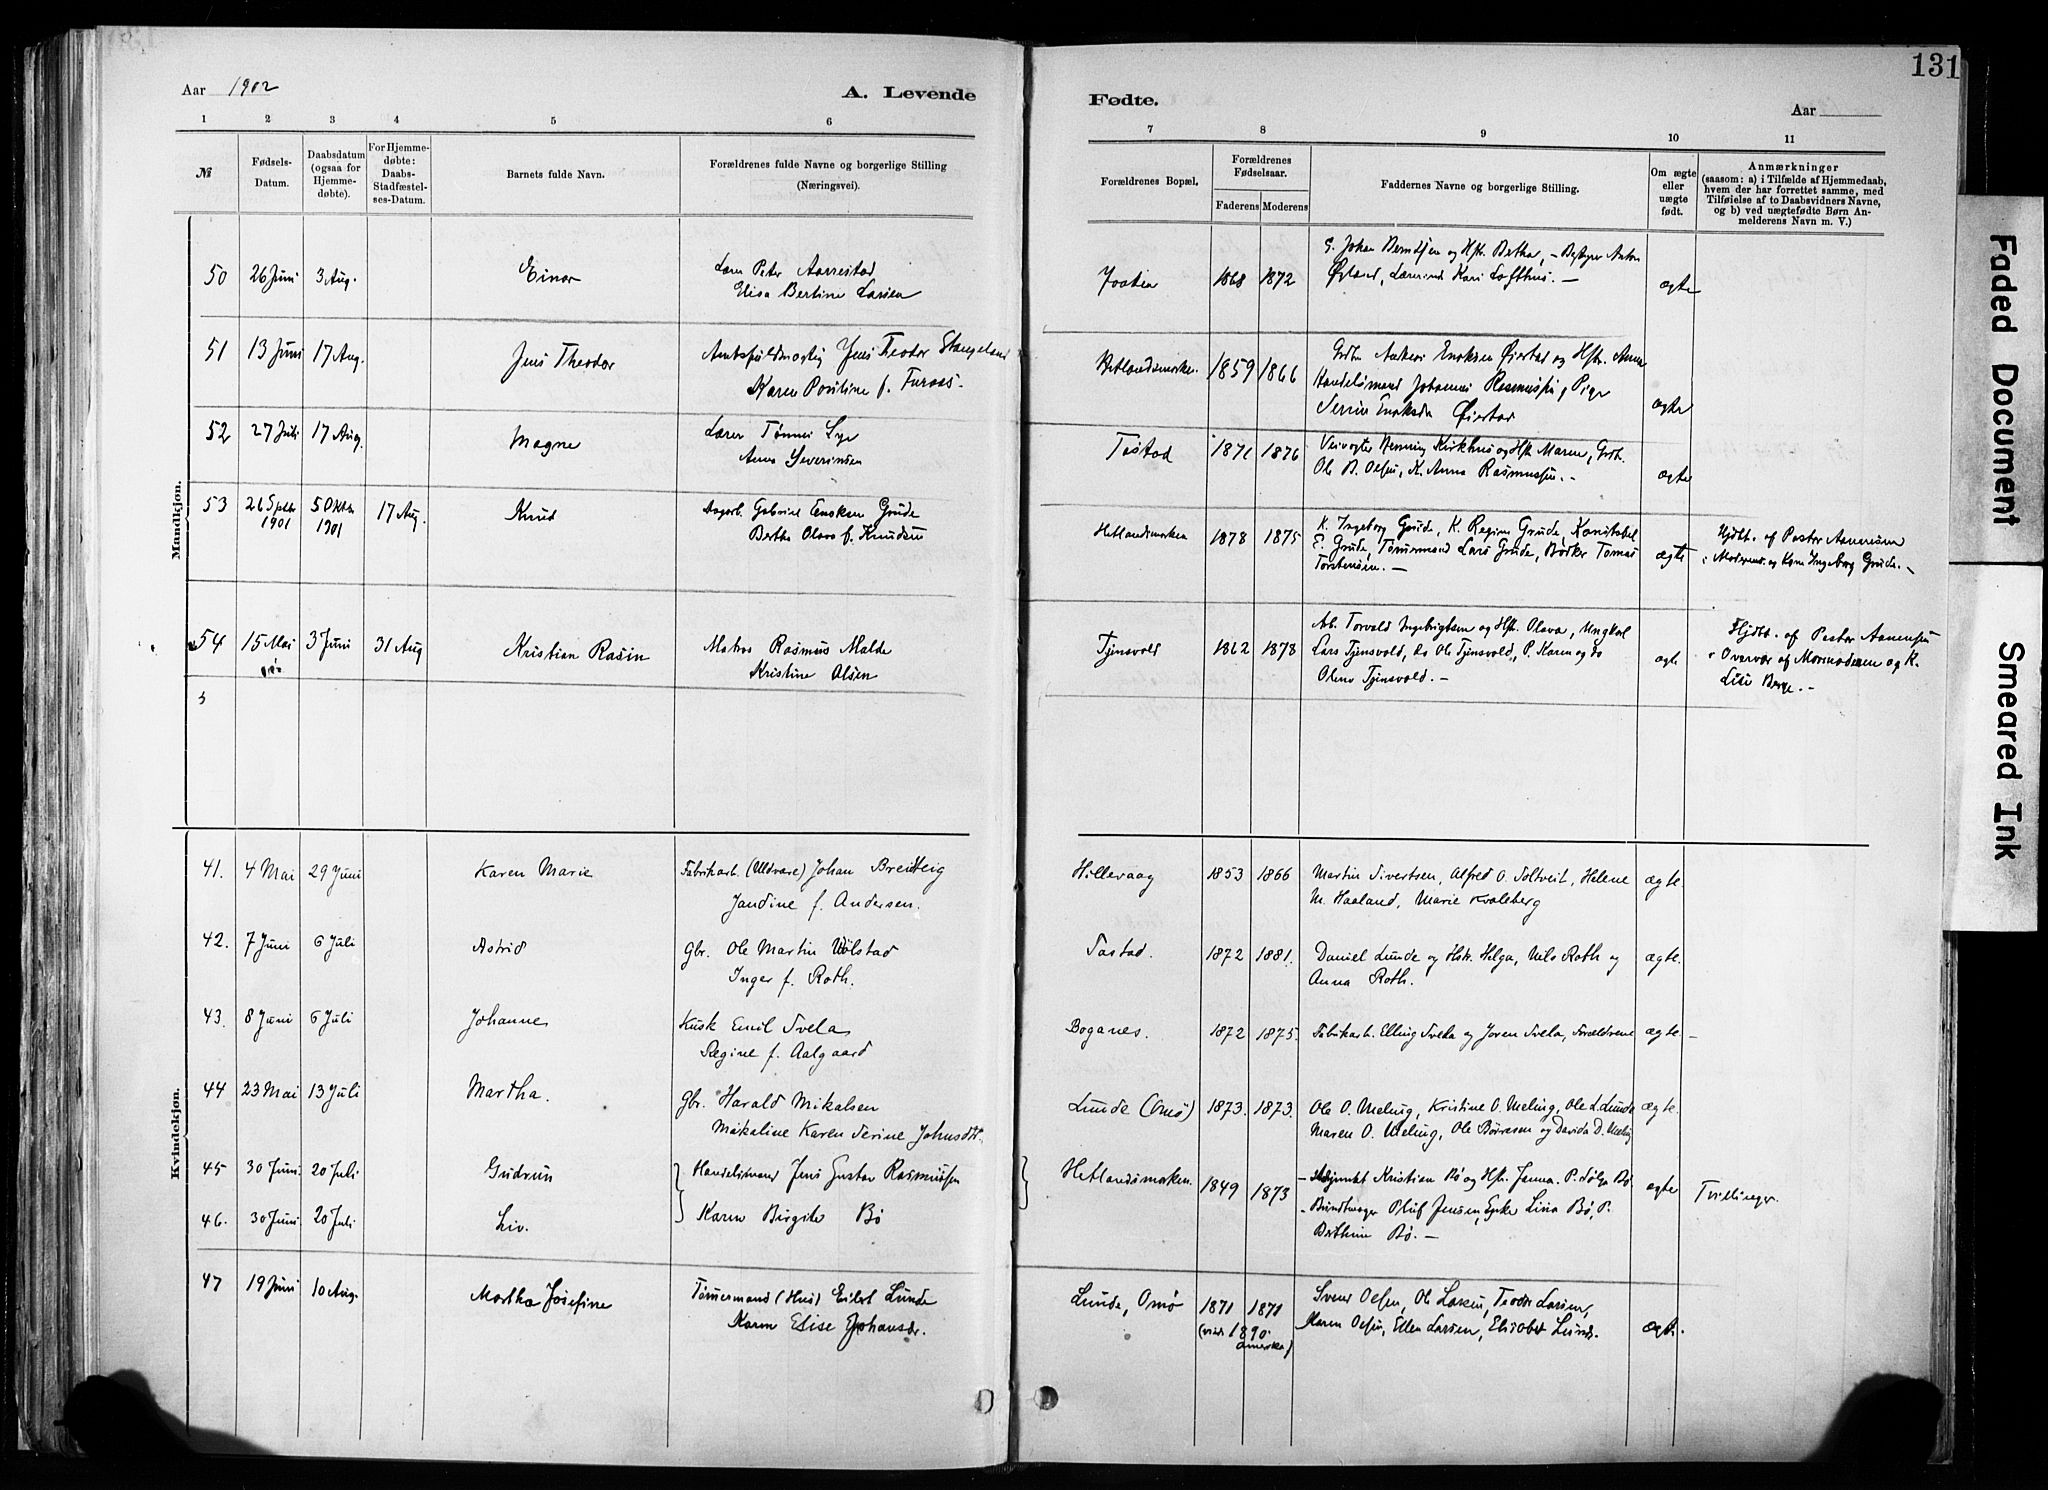 131
Aar 1902
A. Levende
Fødte.
Aar
1 2 3 4 5 6 7 8 9 10 11
№
Fødsels-
Datum.
Daabsdatum
(ogsaa for
Hjemme-
døbte).
For Hjemme-
døbte:
Daabs-
Stadfæstel-
ses-Datum.
Barnets fulde Navn.
Forældrenes fulde Navne og borgerlige Stilling
(Næringsvei).
Forældrenes Bopæl.
Forældrenes
Fødselsaar.
Faderens Moderens
Faddernes Navne og borgerlige Stilling.
Om ægte
eller
uægte
født.
Anmærkninger
(saasom: a) i Tilfælde af Hjemmedaab,
hvem der har forrettet samme, med
Tilføielse af to Daabsvidners Navne,
og b) ved uægtefødte Børn An-
melderens Navn m. V.)
Mandkjøn.
50 26 Juni 3 Aug. Einar
Peter Aarrestad
Elisa Bertine Larsen
1868 1872
Johan Berndsen og Hst. Bertha, – Bestyrer Anton
Øgland, Lærerinde Kari Lofthus. –
ægte
51 13 Juni 17 Aug. Jens Theodor
Amtsfuldmægtig Jens Teodor Stangeland
Karen Positine f. Furaas.
Hetlandsmarken. 1859 1866
Enoksen Øiestad og Hstr. Anna
Handelsmand Johannes Rasmussen, Pige
Serine Enoksdr Øiestad
ægte
52 27 Juli 17 Aug. Magne
Lærer Tønnes Lye
Anna Severinsen
Tastad 1871 1876
Veivogter Henning Kirkhus og Hst. Maren, Grdb.
Ole B. Olsen, K. Anna Rasmussen. –
ægte
53 26 Septbr 1901 5 Oktbr 1901 17 Aug. Knud
Dagarb. Gabriel Enoksen Grude
Berthe Olava f. Knudsen
Hetlandsmarken 1878 1875
K. Ingeborg Grude, K. Regine Grude, Konstabel
E. Grude, Tømmermand Lars Grude, Bødker Tomas
Torstensen. –
ægte
Hjdbt. af Pastor Aanensen
Moderens og Kone Ingeborg Grude. –
54 15 Mai 3 Juni 31 Aug Kristian Rasin
Matros Rasmus Malde
Kristine Olsen
Tjensvold 1862 1878
Ab. Torvald Ingebrigtsen og Hst. Olava, Ungkarl
Lars Tjensvold, do Ole Tjensvold, P. Karen og do
Olene Tjensvold. –
ægte
Hjdbt. af Pastor Aanensen
i Overvær af Mormoderen og K.
Lise Berge. –
5
Kvindekjøn.
41. 4 Mai 29 Juni Karen Marie
Fabrikarb. (Uldvare) Johan Breiteig
Jandine f. Andersen.
Hillevaag 1853 1866
Martin Sivertsen, Alfred O. Soltveit, Helene
M. Haaland, Marie Kvaleberg
ægte.
42. 7 Juni 6 Juli Astrid
Gbr. Ole Martin Ullstad
Inger f. Roth.
Tastad. 1872 1881.
Daniel Lunde og Hst. Helga, Nils Roth og
Anna Roth.
ægte.
43. 8 Juni 6 Juli Johanne
Kusk Emil Tvela
Regine f. Aalgaard
Boganes. 1872 1875.
Fabrikarb. Elling Tveita og Joren Tvela, Forældrene
ægte –
44 23 Mai 13 Juli Martha.
Gbr. Harald Mikalsen
Mikaline Karen Serine Johnsdtr.
Lunde (Omø) 1873. 1873.
Ole O. Meling, Kristine O. Meling, Ole L. Lunde
Maren O. Meling, Ole Børresen og Davida D. Meling
ægte.
45 30 Juni. 20 Juli Gudrun
46. 30 Juni. 20 Juli Liv.
Handelsmand Jens Gustav Rasmussen
Karen Birgite Bø
Hetlandsmarken. 1849 1873
– Adjunkt Kristian Bø og Hstr. Janna. P. Helga Bø
– Buntmager Oluf Jensen, Enke Lina Bø, P.
Berthine Bø. –
ægte
Tvillinger.
47 19 Juni 10 Aug. Martha Josefine
Tømmermand (Hus) Eilert Lunde
Karen Elise Johansdr.
Lunde, Omø 1871 1871
1890
Amerika)
Svend Olsen, Ole Larsen, Teodor Larsen,
Maren Olsen, Ellen Larsen, Elisabet Lunde.
ægte.
Faded Document
Smeared Ink